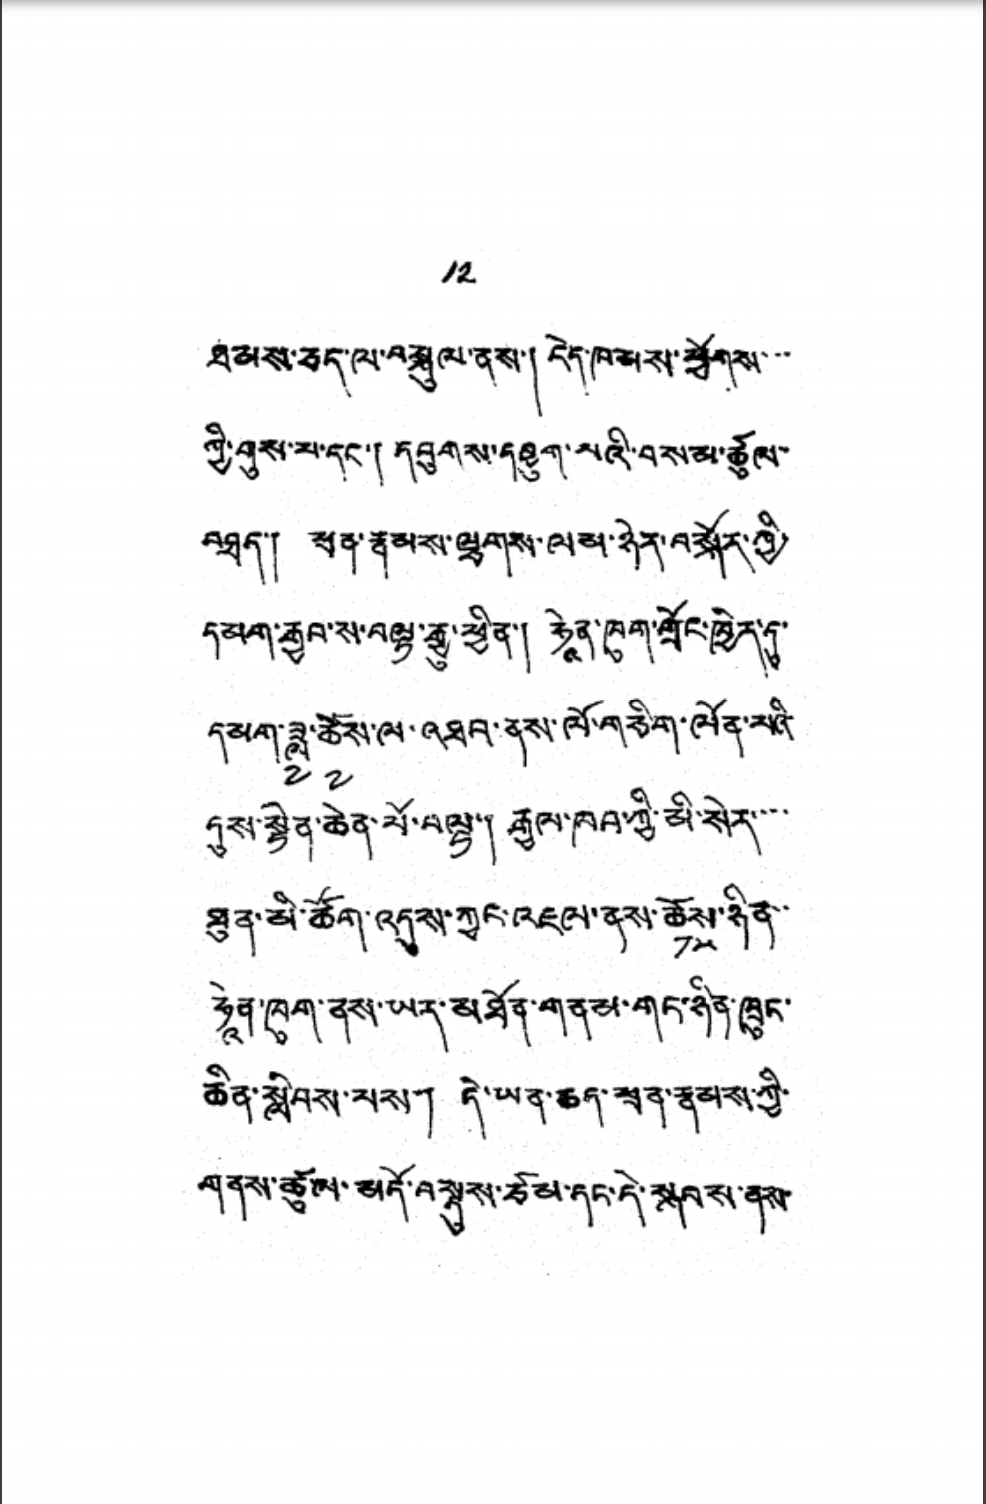 12
ཐམས་ཅད་ལ་བསྐུལ་ནས། ངེད་ཁམས་ཕྱོགས་...
ཀྱི་ལུས་པ་དང་། དབུགས་དབུག་པའི་བསམ་ཚུལ་
བཤད། ཕྲན་རྣམས་ལྷགས་ལམ་ཉེར་བསྐོར་གྱི་
དམག་རྒྱབ་ས་བལྟ་རྒྱུ་ཕྱིན། ཧྲེན་ཁུག་གྲོང་ཁྱེར་དུ་
དམག་ཟླ་ཚེས་ལ་འཐབ་ནས་ལོ་གཅིག་ལོན་པའི་
2 2
དུས་སྟེན་ཆེན་པོ་བལྟ། རྒྱལ་ཁབ་ཀྱི་མི་སེར་...
ཐུན་མི་ཚོག་འདུས་ཀྱང་འཛལ་ནས་ཚེས་ཉིན་..
75
ཧྲེན་ཁུག་ནས་ཡར་མ་ཐོན་གནམ་གང་ཉིན་ཁྲུང་
ཆིན་སླེབས་པས། དེ་ཡན་ཆད་ཕྲན་རྣམས་ཀྱི་
གནས་ཚུལ་མདོ་བསྡུས་ཙམ་དང་དེ་སྐབས་ནས་